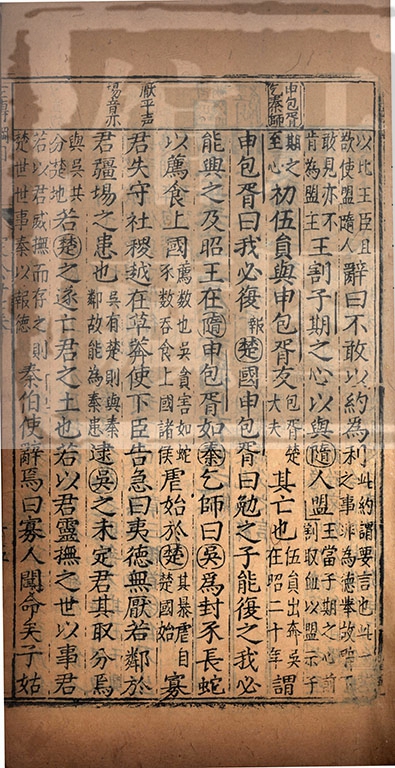 申包胥
乞秦師
厭平声
埸音亦
以比王臣且
欲使盟隨人辭曰不敢以約為利此約謂要言也此一
敢見亦不
肯為盟主王割子期之心以與隨人盟王當子期之心前
割取血以盟示子
期之
至心初伍員與申包胥友包胥楚
大夫其亡也伍員出奔吳
在昭二十年謂
申包胥曰我必復報楚國申包胥曰勉之子能復之我必
能興之及昭王在隨申包胥如秦乞師曰吳為封豕長蛇
以薦食上國薦數也吳貪害如蛇
豕數吞食上國諸侯虐始於楚其暴虐自
楚國始寡
君失守社稷越在草莽使下臣告急曰夷德無厭若鄰於
君疆埸之患也吳有楚則與秦
鄰故能為秦患逮吳之未定君其取分焉
與吳共
分楚地若楚之遂亡君之土也若以君靈撫之世以事君
若以君威撫而存之則
楚世世事秦以報德秦伯使辭焉曰寡人聞命矣子姑